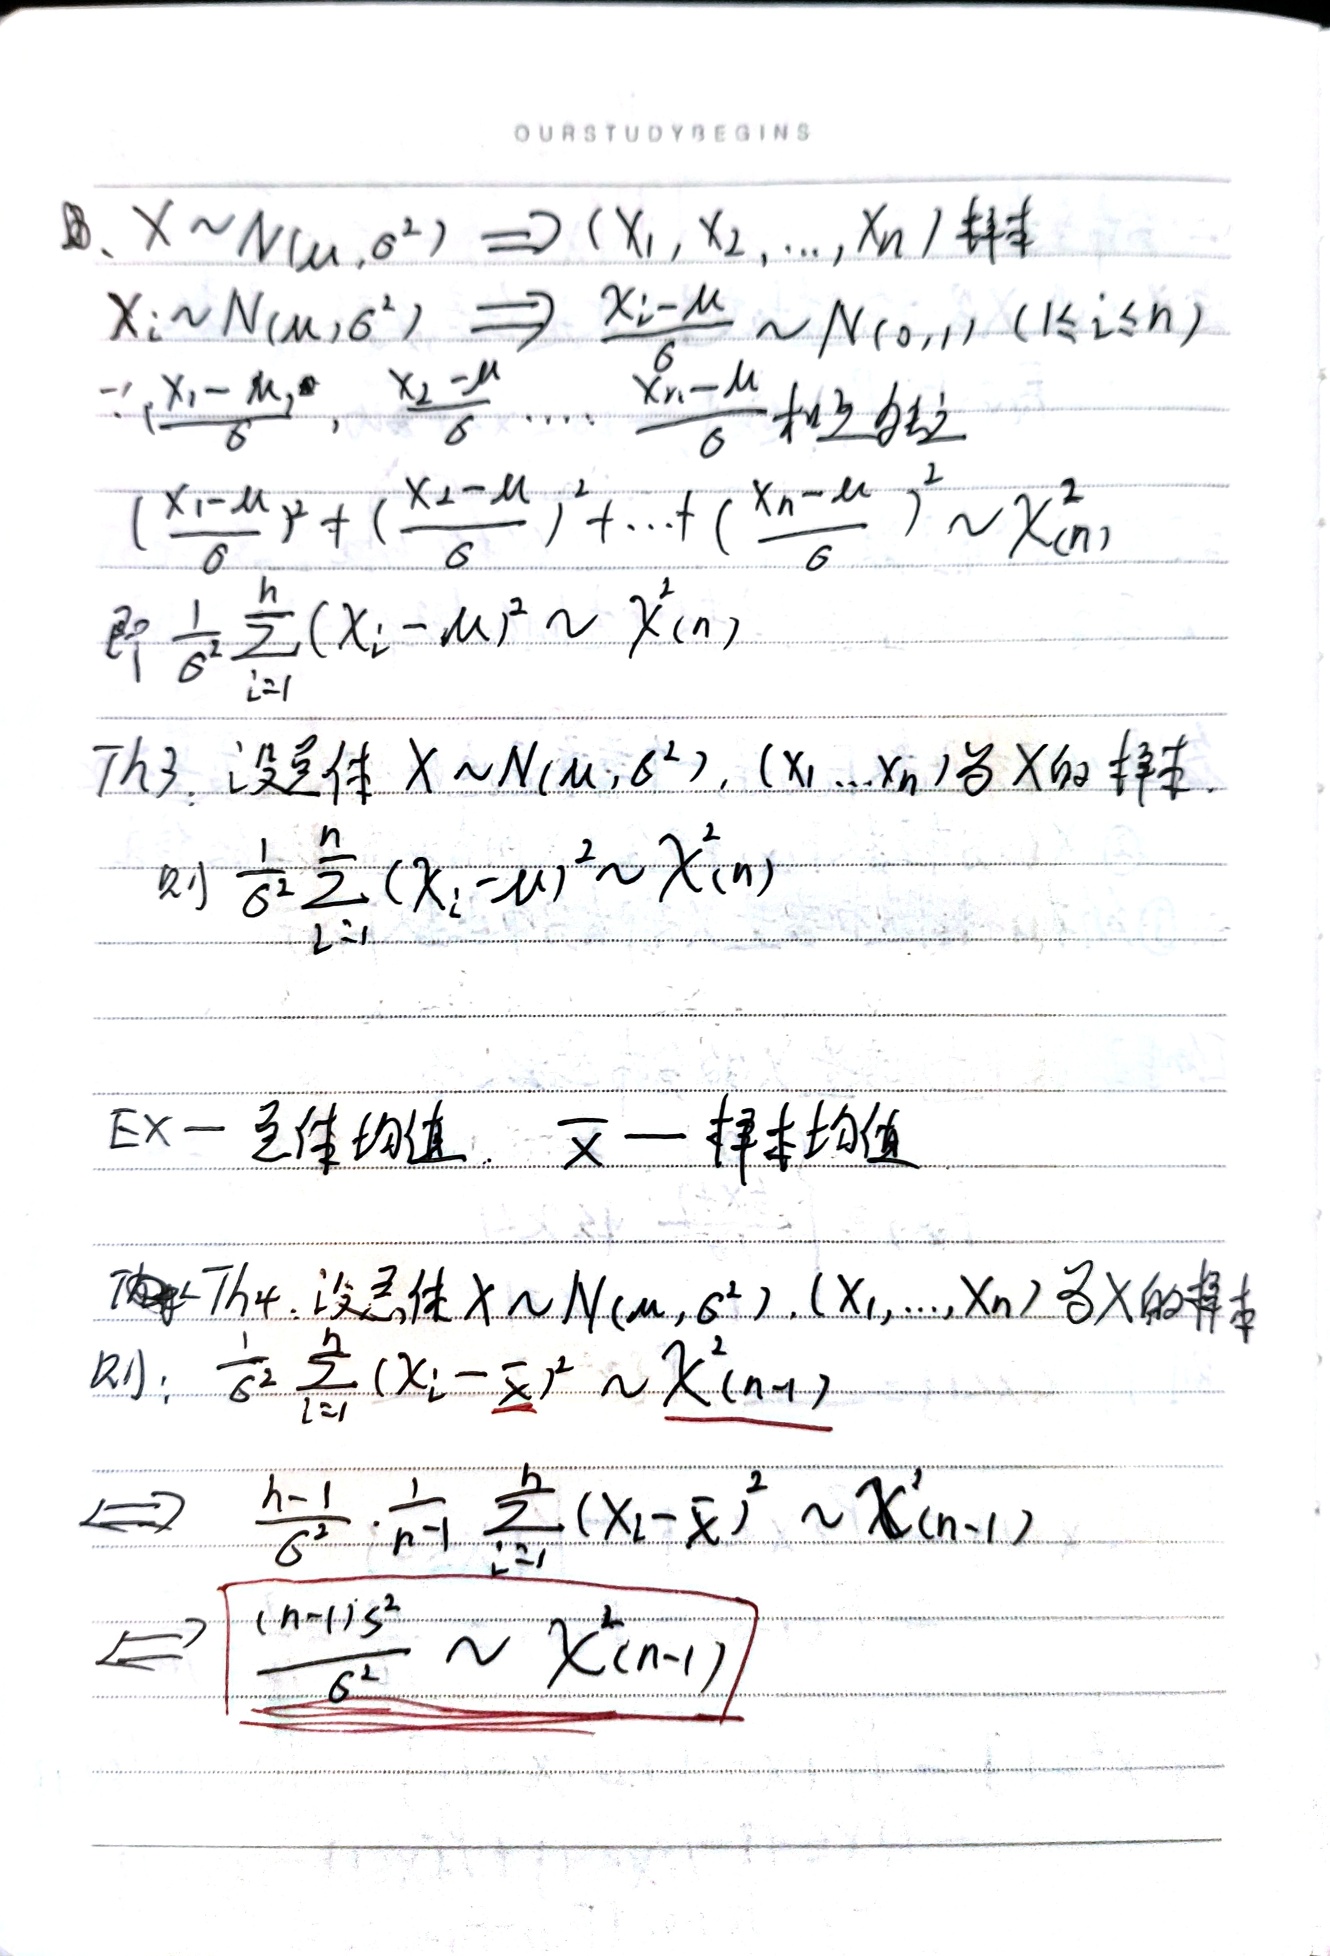 OURSTUDYBEGINS
B、X ~ N(μ, σ²) ⇒ (X₁, X₂, ..., Xn) 样本
Xi ~ N(μ, σ²) ⇒ (Xi-μ)/σ ~ N(0,1) (1≤i≤n)
∵ (X₁-μ)/σ, (X₂-μ)/σ .... (Xn-μ)/σ 相互独立
((X₁-μ)/σ)² + ((X₂-μ)/σ)² + ... + ((Xn-μ)/σ)² ~ χ²(n)
即 1/σ² ∑_{i=1}^{n} (Xi-μ)² ~ χ²(n)
Th3. 设总体 X ~ N(μ, σ²), (X₁...Xn) 为X的样本.
则 1/σ² ∑_{i=1}^{n} (Xi-μ)² ~ χ²(n)
EX — 总体均值. X̄ — 样本均值
Th4. 设总体 X ~ N(μ, σ²). (X₁, ..., Xn) 为X的样本
则: 1/σ² ∑_{i=1}^{n} (Xi-X̄)² ~ χ²(n-1)
⇔ (n-1)/σ² · 1/(n-1) ∑_{i=1}^{n} (Xi-X̄)² ~ χ²(n-1)
⇔ (n-1)S²/σ² ~ χ²(n-1)